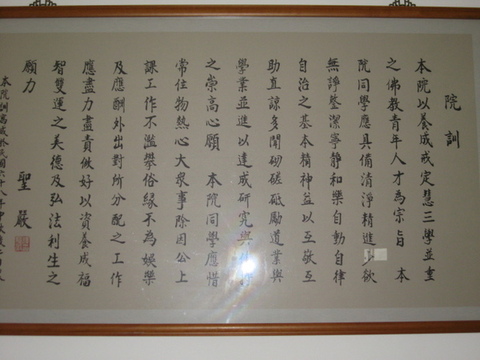 院訓
本院以養成戒定慧三學並重
之佛教青年人才為宗旨 本
院同學應具備清淨精進少欲
無諍整潔寧靜和樂自動自律
自治之基本精神益以互敬互
助直諒多聞砌磋砥勵道業與
學業並進以達成研究與
之崇高心願 本院同學應惜
常住物熱心大眾事除因公上
課工作不濫攀俗緣不為娛樂
及應酬外出對所分配之工作
應盡力盡責做好以資養成福
智雙運之美德及弘法利生之
願力 聖嚴
本院訓寫成於民國六十